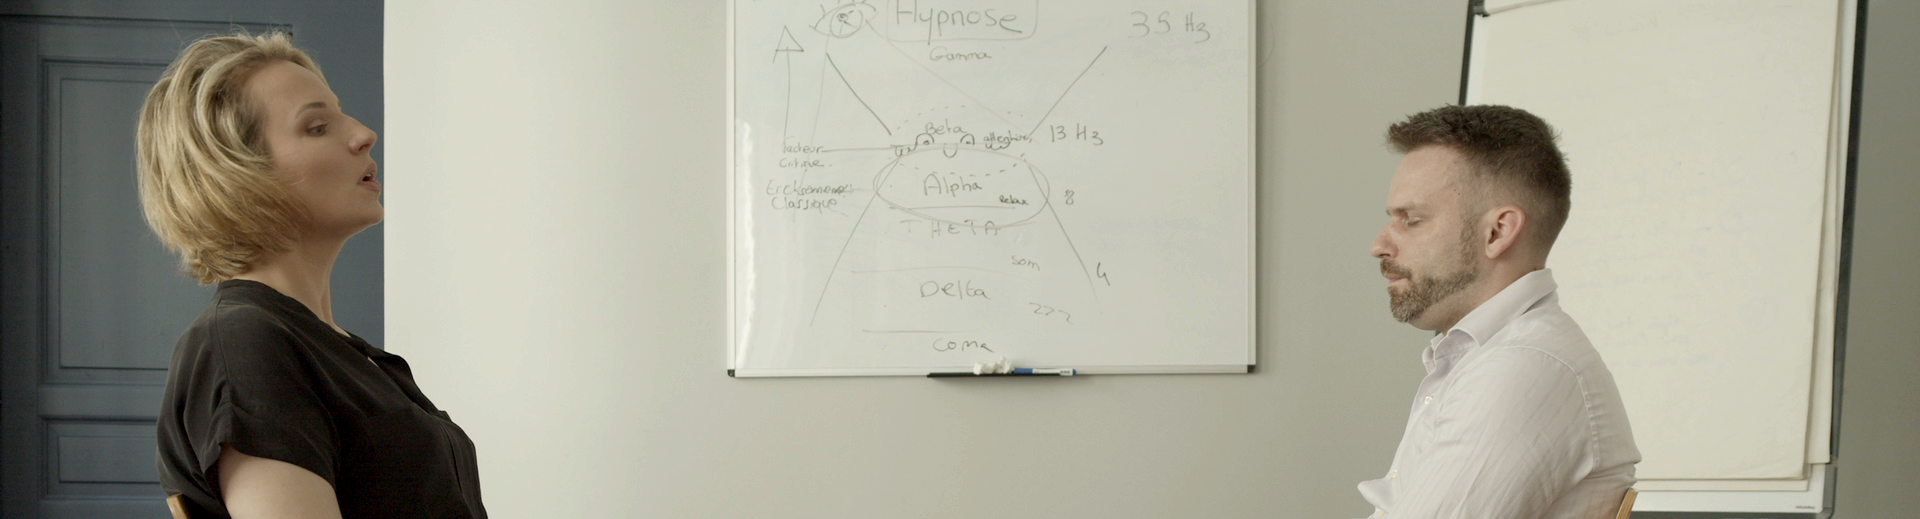 Hypnose
35 Hz
Gamma
Beta
13 Hz
Facteur
Critique
Alpha
8
Classique
relax
THETA
som
4
Delta
zzz
Coma